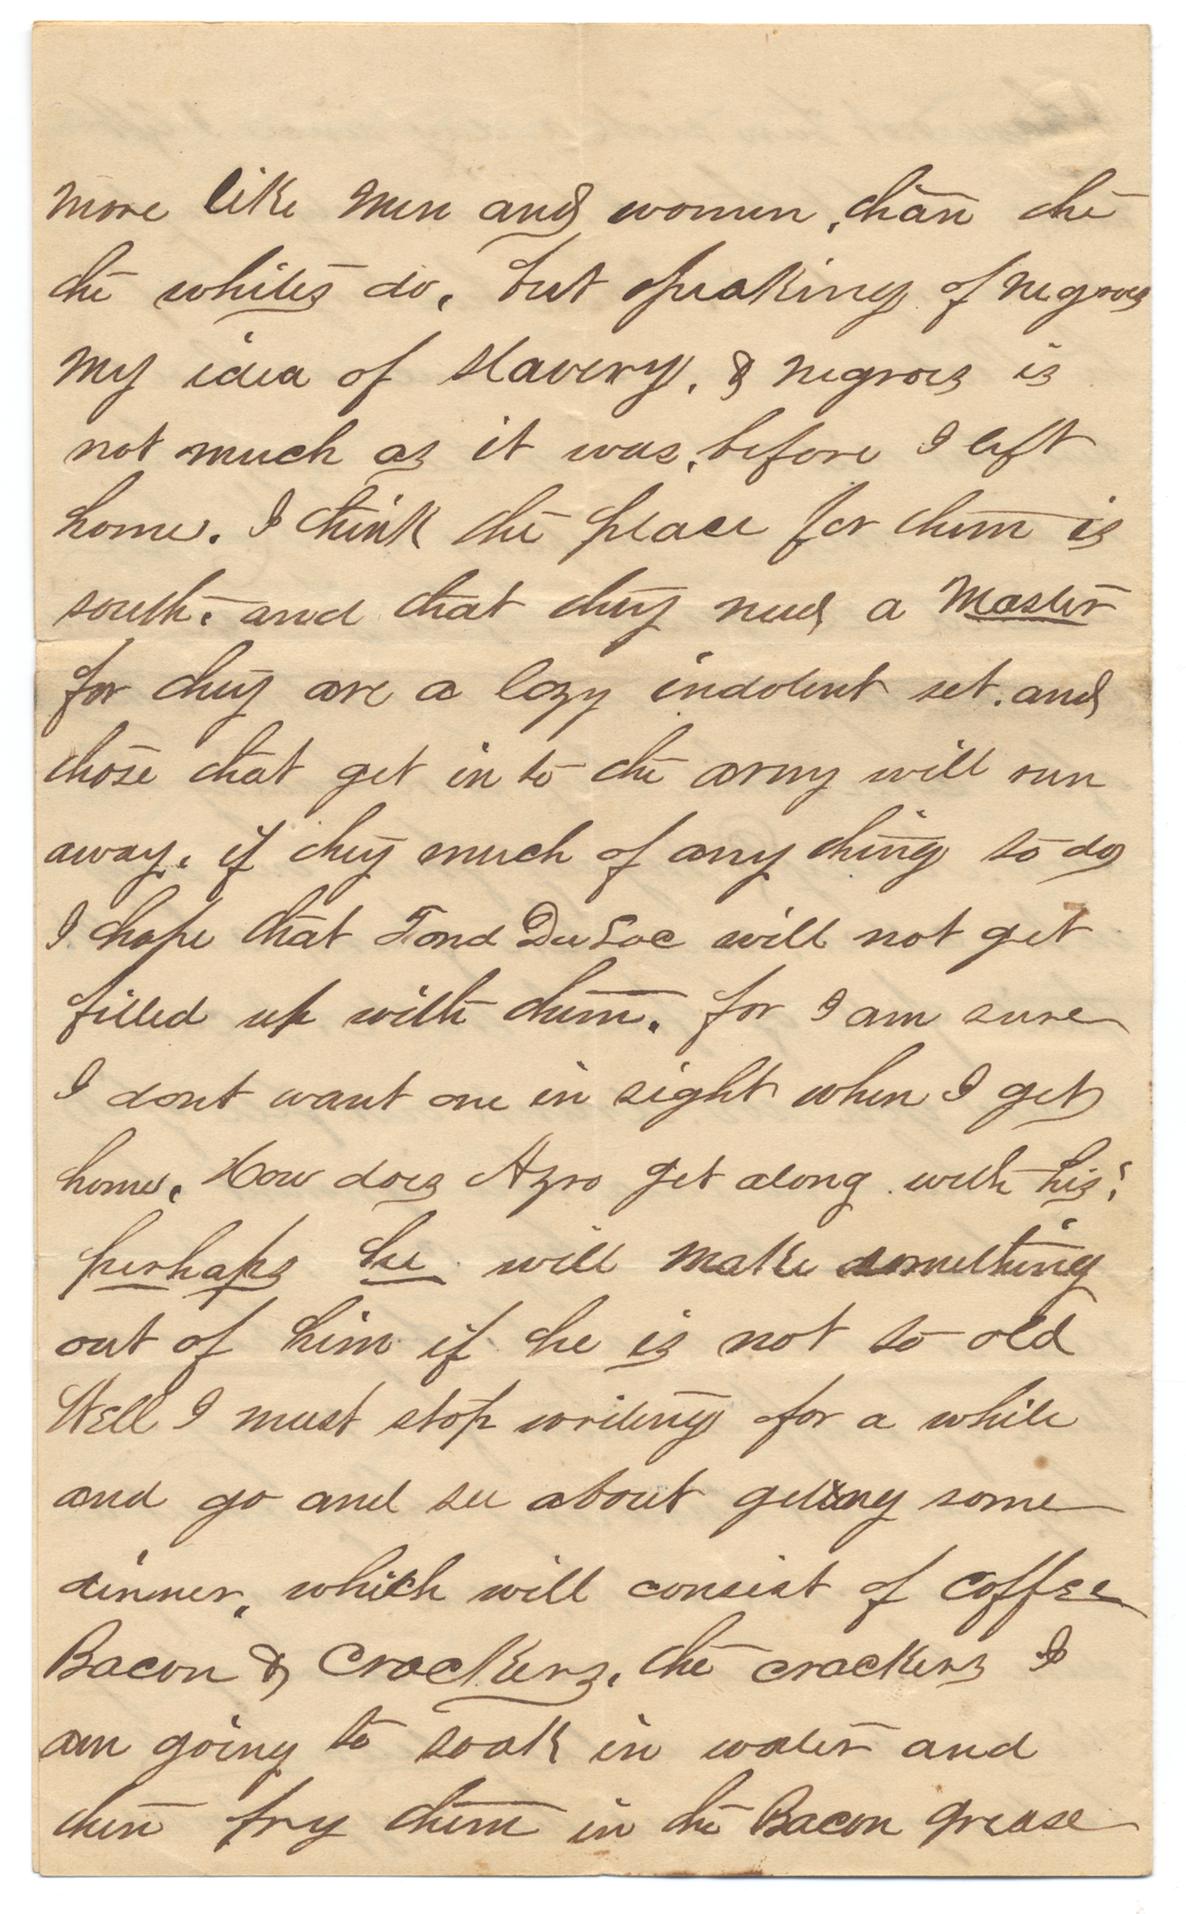 more like men and women, than the
the whites do, but speaking of negroes
my idea of slavery, & negroes is
not much as it was, before I left
home. I think the place for them is
south, and that they need a Master
for they are a lazy indolent set. and
those that get in to the army will run
away, if they much of any thing to do
I hope that Fond Du Lac will not get
filled up with them, for I am sure
I dont want one in sight when I get
home, How does Azro get along with his?
perhaps he will make something
out of him if he is not to old
Well I must stop writing for a while
and go and see about geting some
dinner, which will consist of coffee
Bacon & Crackers, the crackers I
am going to soak in water and
then fry them in the Bacon grease